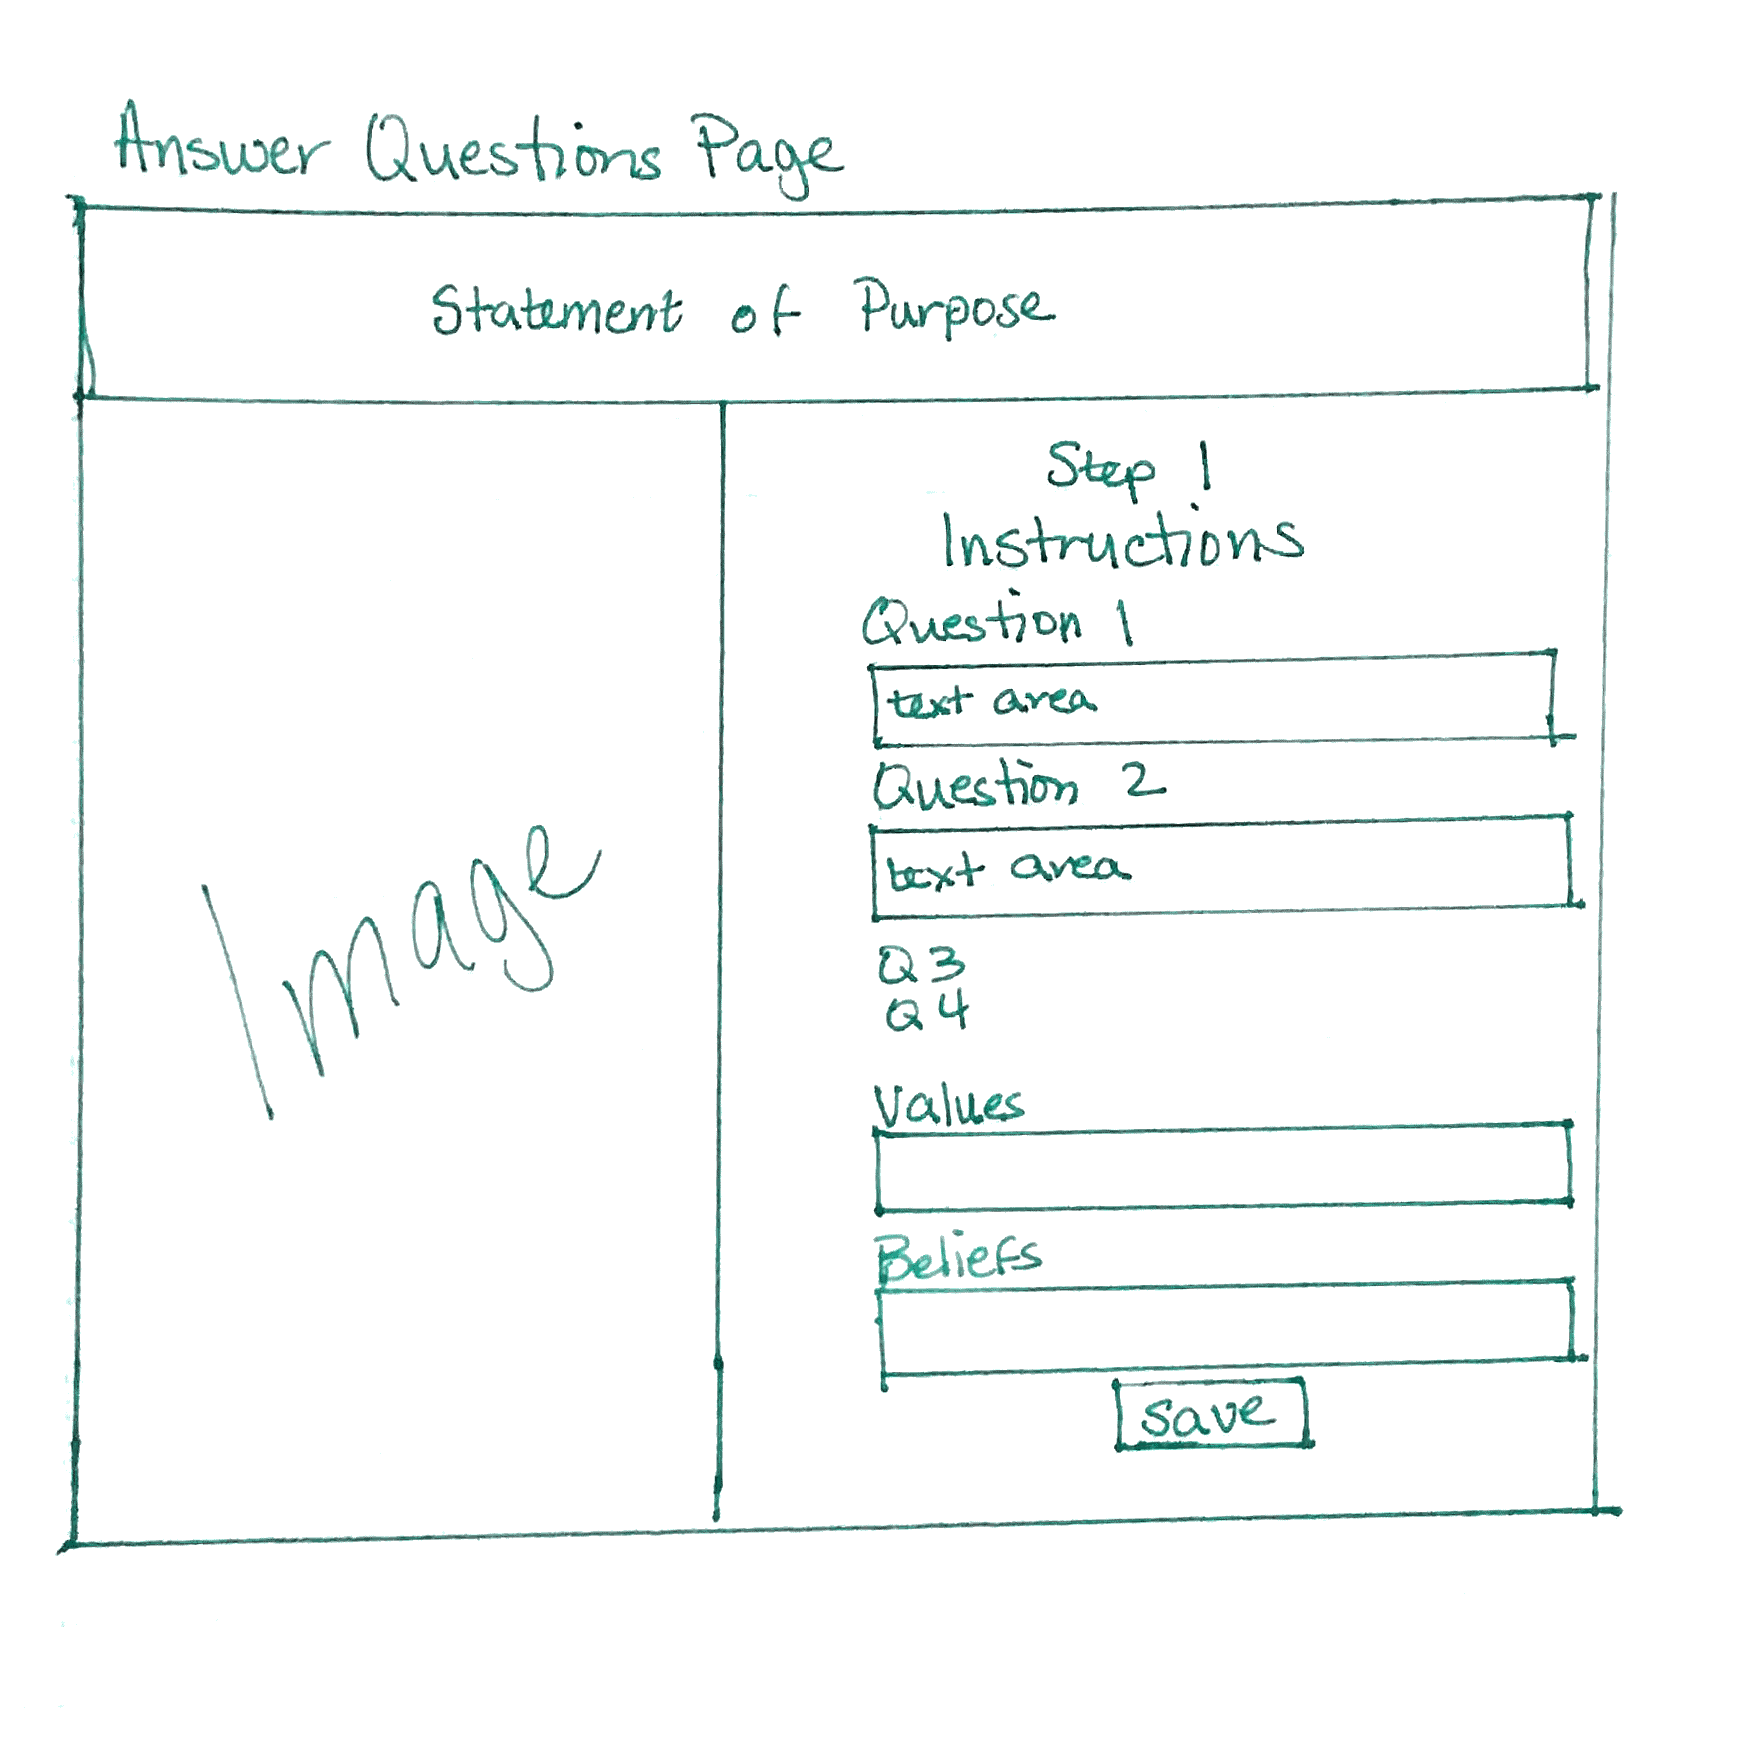 Answer Questions Page
Statement of Purpose
Step 1
Instructions
Question 1
text area
Question 2
text area
Q3
Q4
Values
Beliefs
save
Image